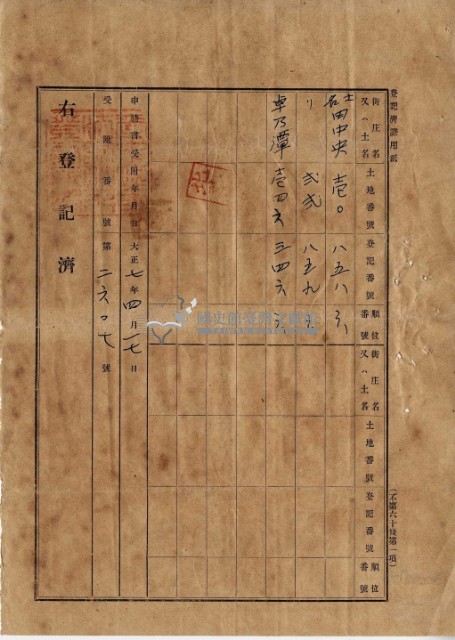 登記濟證用紙
街庄名又ハ土名 土地番號 登記番號 順位番號 街庄名又ハ土名 土地番號 登記番號 順位番號
田中央 壱〇 八五八
〃 弐弐 八五九
車乃潭 壱四六 三四六
申請書受附年月日 大正七年四月一七日
受附番號 第二六〇七號
右登記濟
國史館臺灣文獻館